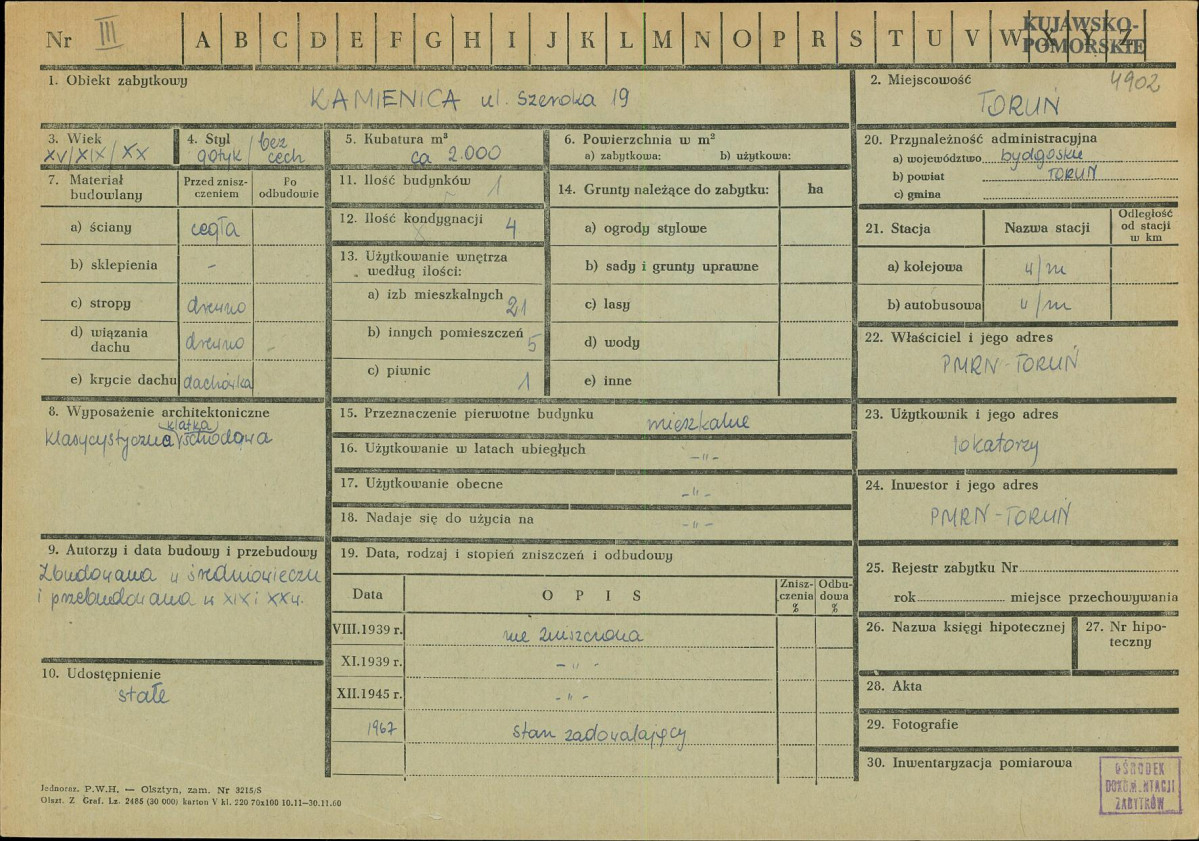 Nr III A B C D E F G H I J K L M N O P R S T U V W X Y Z
KUJAWSKO-
POMORSKIE
1. Obiekt zabytkowy
KAMIENICA ul. Szeroka 19
2. Miejscowość
4902
TORUŃ
3. Wiek
XV/XIX/XX
4. Styl
gotyk/bez
cech
5. Kubatura m³
ca 2.000
6. Powierzchnia w m²
a) zabytkowa: b) użytkowa:
20. Przynależność administracyjna
a) województwo bydgoskie
b) powiat TORUŃ
c) gmina
7. Materiał
budowlany
Przed znisz-
czeniem
Po
odbudowie
a) ściany cegła
b) sklepienia -
c) stropy drewno
d) wiązania
dachu drewno -
e) krycie dachu dachówka
11. Ilość budynków 1
12. Ilość kondygnacji 4
13. Użytkowanie wnętrza
według ilości:
a) izb mieszkalnych 21
b) innych pomieszczeń 5
c) piwnic 1
14. Grunty należące do zabytku: ha
a) ogrody stylowe
b) sady i grunty uprawne
c) lasy
d) wody
e) inne
21. Stacja Nazwa stacji
Odległość
od stacji
w km
a) kolejowa w/m
b) autobusowa w/m
22. Właściciel i jego adres
PMRN-TORUŃ
8. Wyposażenie architektoniczne
klatka
klasycystyczna schodowa
15. Przeznaczenie pierwotne budynku mieszkalne
16. Użytkowanie w latach ubiegłych -"-
17. Użytkowanie obecne -"-
18. Nadaje się do użycia na -"-
23. Użytkownik i jego adres
lokatorzy
24. Inwestor i jego adres
PMRN-TORUŃ
9. Autorzy i data budowy i przebudowy
Zbudowana w średniowieczu
i przebudowana w XIX i XX w.
10. Udostępnienie
stałe
19. Data, rodzaj i stopień zniszczeń i odbudowy
Data OPIS
Znisz-
czenia
%
Odbu-
dowa
%
VIII.1939 r. nie zniszczona
XI.1939 r. -"-
XII.1945 r. -"-
1967 stan zadowalający
25. Rejestr zabytku Nr
rok miejsce przechowywania
26. Nazwa księgi hipotecznej
27. Nr hipo-
teczny
28. Akta
29. Fotografie
30. Inwentaryzacja pomiarowa
OŚRODEK
DOKUMENTACJI
ZABYTKÓW
Jednoraz. P.W.H. — Olsztyn, zam. Nr 3215/S
Olszt. Z Graf. Lz. 2485 (30 000) karton V kl. 220 70x100 10.11-30.11.60